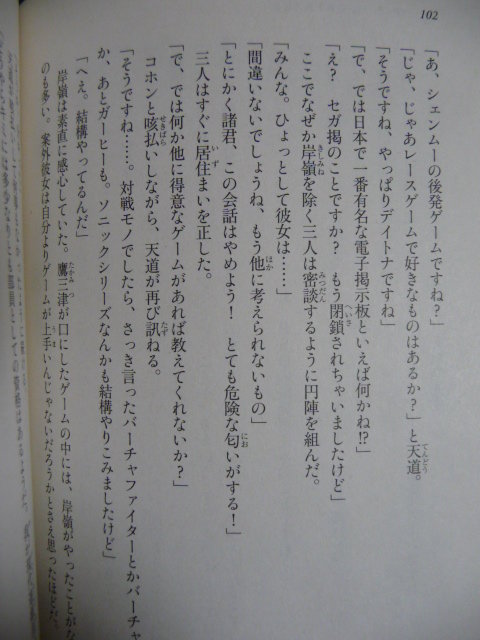 102
「あ、シェンムーの後発ゲームですね?」
「じゃ、じゃあレースゲームで好きなものはあるか?」と天道。
「そうですね、やっぱりデイトナですね」
「で、では日本で一番有名な電子掲示板といえば何かね!?」
「え? セガ掲のことですか? もう閉鎖されちゃいましたけど」
ここでなぜか岸嶺を除く三人は密談するように円陣を組んだ。
「みんな。ひょっとして彼女は……」
「間違いないでしょうね、もう他に考えられないもの」
「とにかく諸君、この会話はやめよう! とても危険な匂いがする!」
三人はすぐに居住まいを正した。
「で、では何か他に得意なゲームがあれば教えてくれないか?」
コホンと咳払いしながら、天道が再び訊ねる。
「そうですね……。対戦モノでしたら、さっき言ったバーチャファイターとかバーチャ
か、あとガーヒーも。ソニックシリーズなんかも結構やりこみましたけど」
「へぇ。結構やってるんだ」
岸嶺は素直に感心していた。鷹三津が口にしたゲームの中には、岸嶺がやったことがな
のも多い。案外彼女は自分よりゲームが上手いんじゃないだろうかとさえ思ったほどだ。